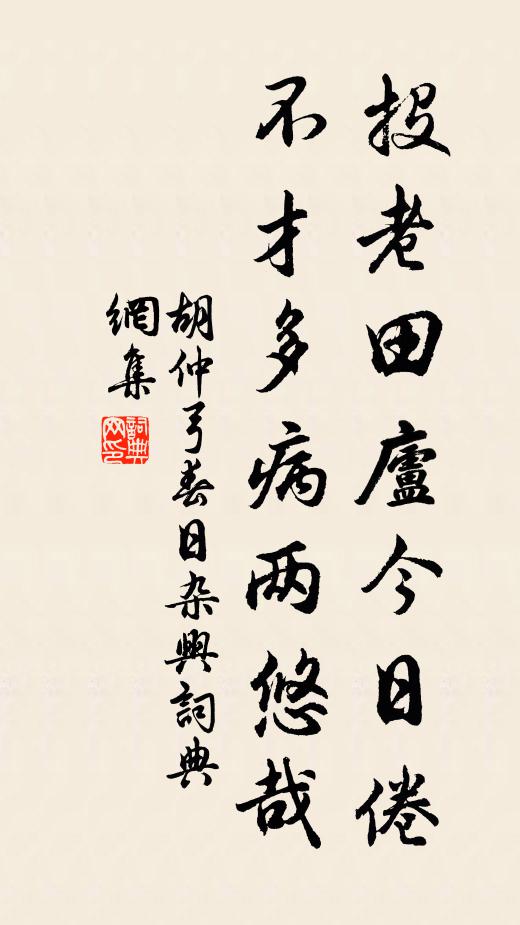 投老田廬今日倦
不才多病两悠哉
胡仲弓春日杂興詞典
網集
詞典
网印